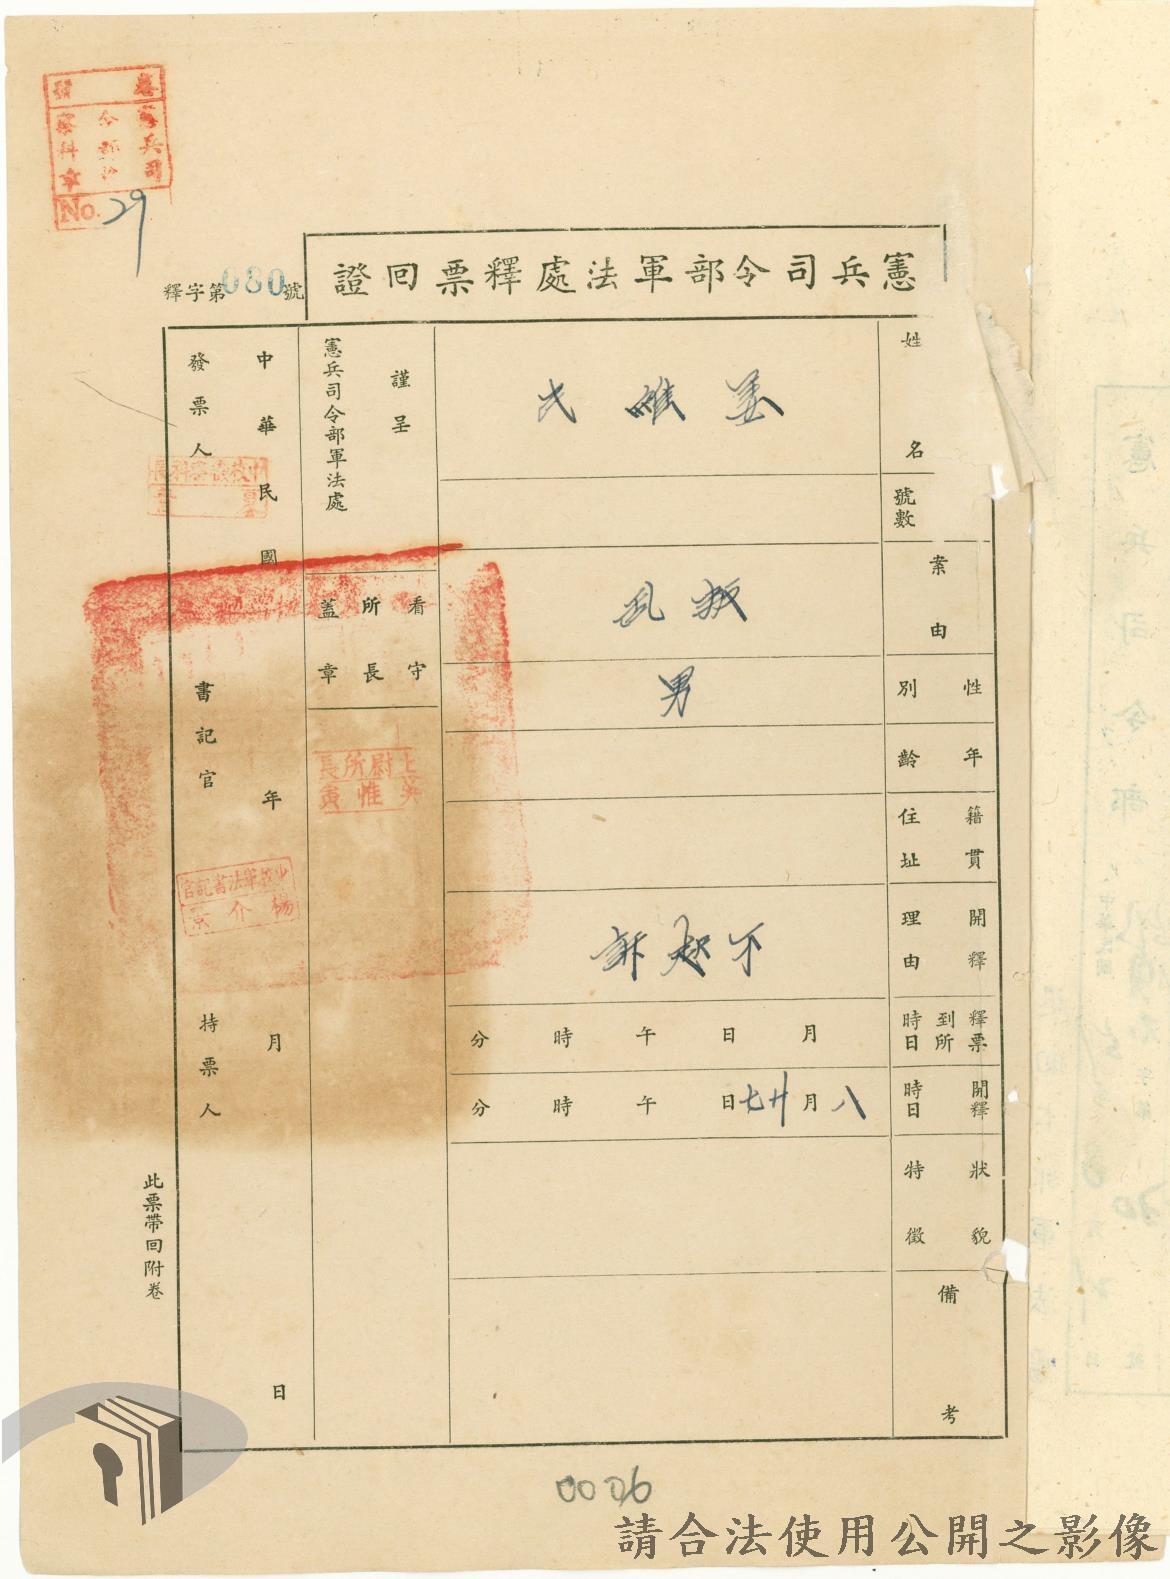 憲兵司令部軍法處釋票回證
釋字第080號
No. 29
姓名
姜唯民
號數
案由
叛乱
性別
男
年齡
籍貫
住址
開釋理由
不起訴
釋票到所時日
月 日 午 時 分
開釋時日
八月廿七日 午 時 分
狀貌特徵
備考
謹呈
憲兵司令部軍法處
看守所長蓋章
上尉所長
中華民國 年 月 日
發票人
書記官
少校軍法書記官
楊介
持票人
此票帶回附卷
0006
請合法使用公開之影像